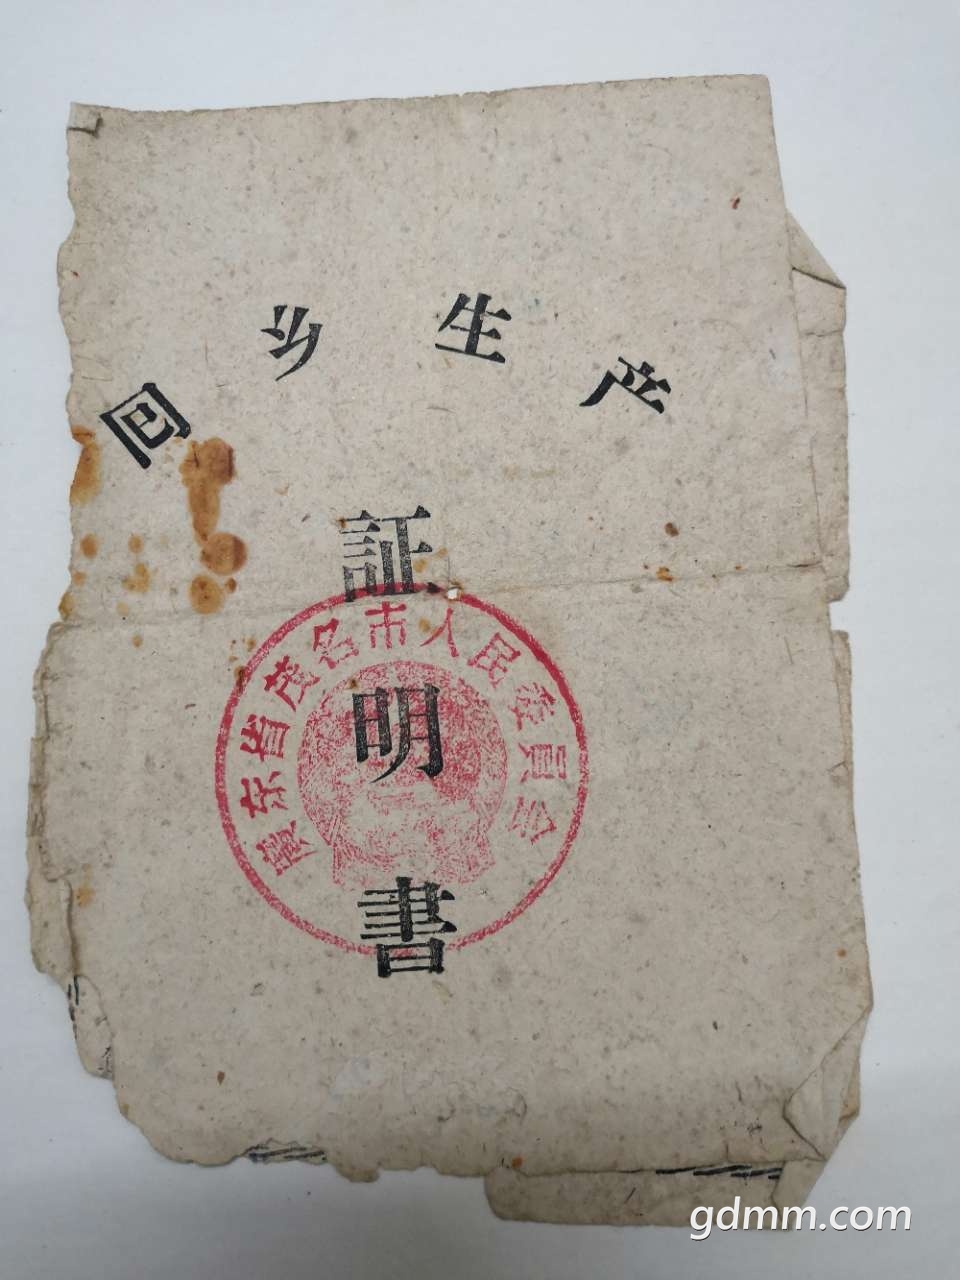 回乡生产
証
明
書
廣东省茂名市人民委員会
gdmm.com